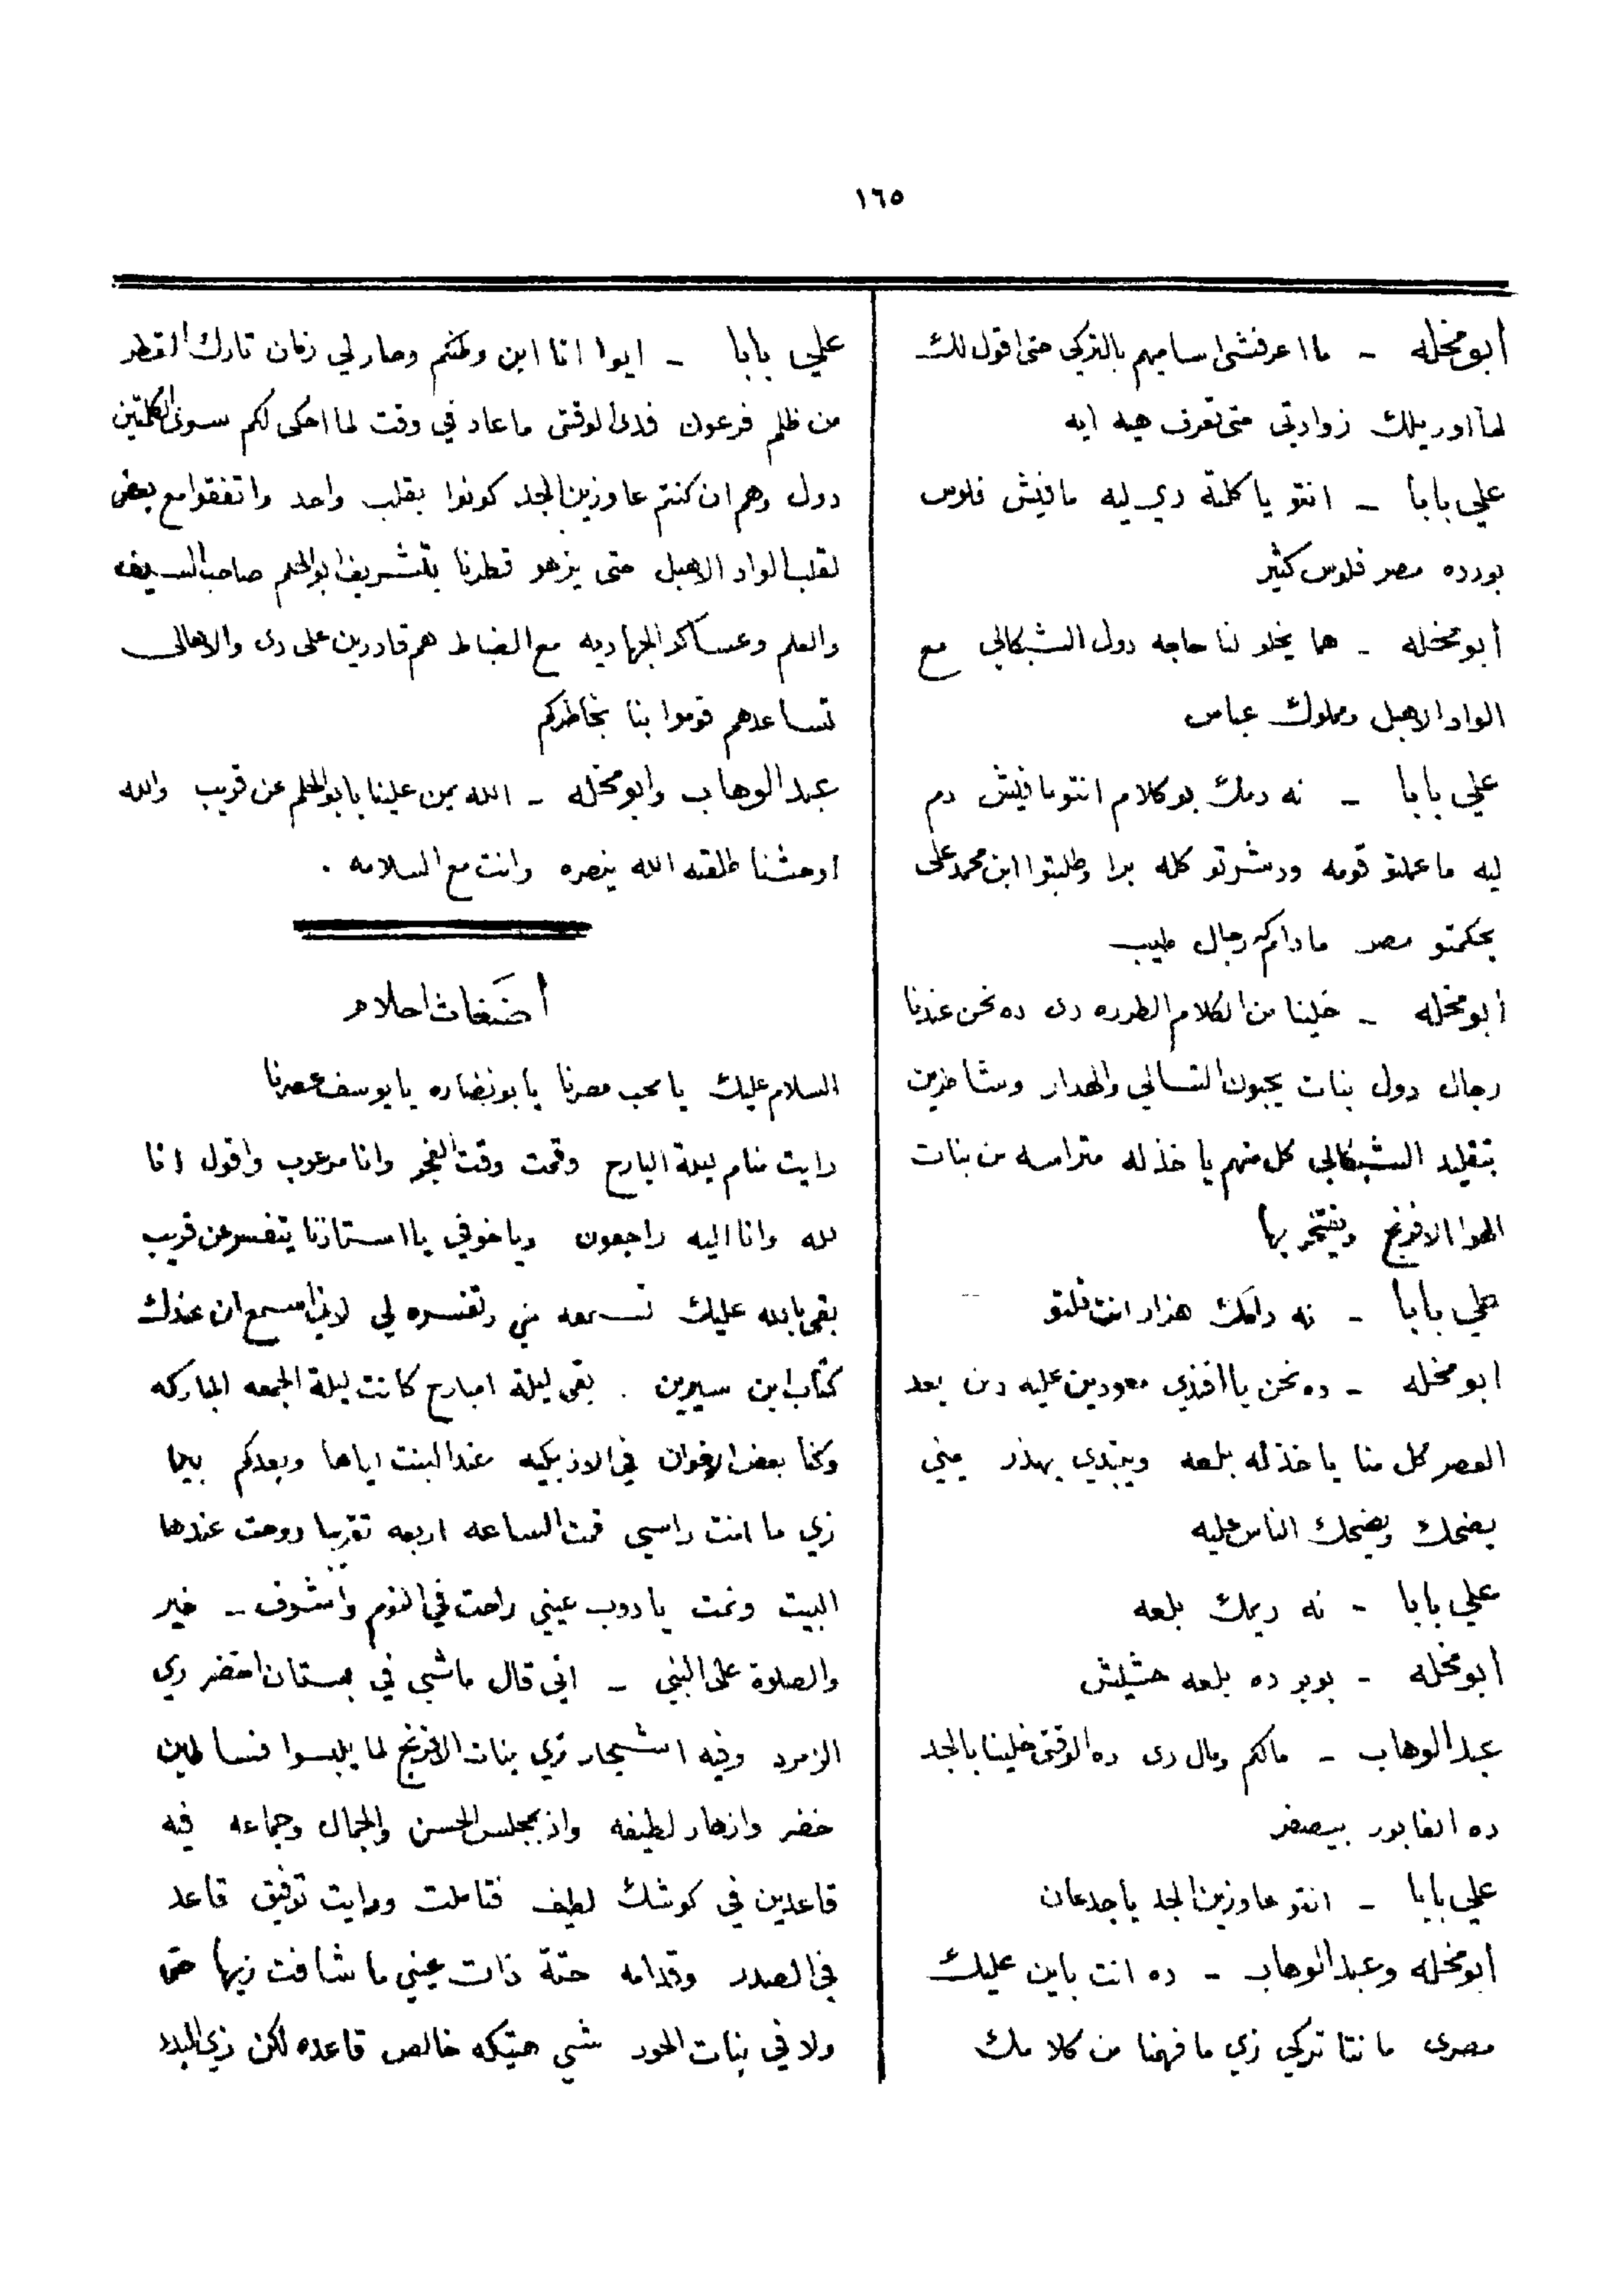 ١٦٥
أبو مخله - ما اعرفش اساميهم بالتركي حتى اقول لك
لما اوريلك زوادتي متى تعرف هيه ايه
علي بابا - انتو يا كلمة دي ليه مافيش فلوس
بورده مصر فلوس كثير
أبو مخله - هما يخلو لنا حاجه دول الشبكالي مع
الواد الاهبل ومملوك عباس
علي بابا - نه دمك بو كلام انتو مافيش دم
ليه ما عملتو قومه ودشرتو كله برا وطلبتوا ابن محمد علي
يحكمتو مصر مادام كه رجال طيب
أبو مخله - خلينا من الكلام الطرره دى ده نحن عندنا
رجال دول بنات يحبون التسالي والهدار وشاطرين
بتقليد الشبكالي كل منهم ياخذ له مترامسه من بنات
الهوا الافرنج ويفتخر بها
علي بابا - نه دامك هزار انت قلتو
ابو مخله - ده نحن يا افندي معودين عليه دن بعد
العصر كل منا ياخذ له بلعه ويبتدي يهذر يعني
يضحك ويضحك الناس عليه
علي بابا - نه ديمك بلعه
أبو مخله - بوبو ده بلعه حشيش
عبد الوهاب - مالكم ومال دى ده الوقتى خلينا بالجد
ده الفابور بيصفر
علي بابا - انتو عاوزين الجد ياجدعان
أبو مخله وعبد الوهاب - ده انت باين عليك
مصرى ما نتا تركي زي ما فهمنا من كلامك
علي بابا - ايوا انا ابن وطنكم وصار لي زمان تارك القطر
من ظلم فرعون فدى الوقتى ما عاد في وقت لما احكى لكم سوى الكلمتين
دول وهم ان كنتم عاوزين الجد كونوا بقلب واحد واتفقوا مع بعض
لقلب الواد الاهبل حتى يزهو قطرنا بتشريف ابو الحلم صاحب السيف
والعلم وعساكر الجهاديه مع الضباط هم قادرين على دى والاهالى
تساعدهم قوموا بنا بخاطركم
عبد الوهاب وابو مخله - الله يمن علينا بابو الحلم عن قريب والله
اوحشنا طلقته الله ينصره وانت مع السلامه .
أضغاث احلام
السلام عليك يا محب مصرنا يا بو نضاره يا يوسف عصرنا
رايت منام ليلة البارح وقمت وقت الفجر وانا مرعوب واقول انا
لله وانا اليه راجعون وياخوفي يا استاذنا يتفسر عن قريب
بقى بالله عليك تسمعه مني وتفسره لي لاني اسمع ان عندك
كتاب ابن سيرين . بقى ليلة امبارح كانت ليلة الجمعه المباركه
وكنا بعض الاخوان في الازبكيه عند البنت اياها وبعدكم بيما
زي ما انت راسي قمت الساعه اربعه تقريبا روحت عندها
البيت ونمت يا دوب عيني راحت في النوم واشوف - خير
والصلوة على النبي - اني قال ماشي في بستان اخضر زي
الزمرد وفيه اشجار زي بنات الافرنج لما يلبسوا فساطين
خضر وازهار لطيفه واذ بمجلس الحسن والجمال وجماعه فيه
قاعدين في كوشك لطيف فتاملت ورايت توفيق قاعد
في الصدر وقدامه حتة ذات عيني ما شافت زيها حتى
ولا في بنات الحور شي هتيكه خالص قاعده لكن زي البدر